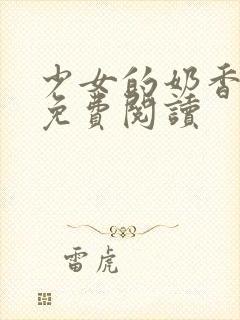 少女的奶香
免費閱讀
雷虎